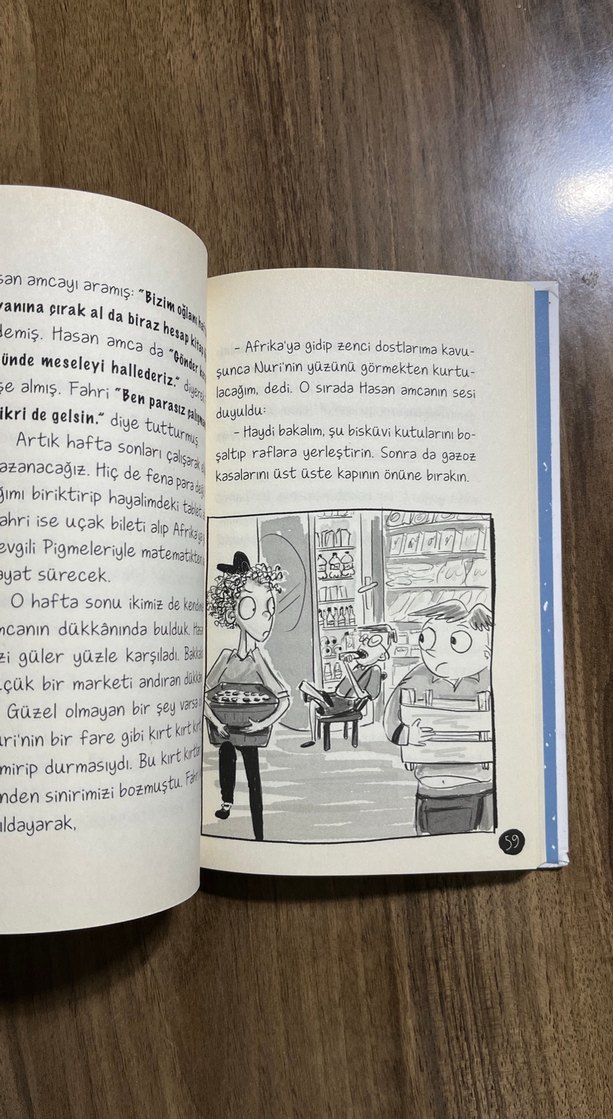 san amcayı aramış: "Bizim oğlanı
yanına çırak al da biraz hesap kitap
demiş. Hasan amca da "Gönder
ünde meseleyi hallederiz."
şe almış. Fahri "Ben parasız
ikri de gelsin." diye tutturmuş.
Artık hafta sonları çalışarak
azanacağız. Hiç de fena para
ğımı biriktirip hayalimdeki
ahri ise uçak bileti alıp
evgili Pigmeleriyle
ayat sürecek.
O hafta sonu ikimiz de
mcanın dükkânında bulduk.
zi güler yüzle karşıladı.
çük bir marketi andıran
Güzel olmayan bir şey varsa
uri'nin bir fare gibi kırt kırt
mirip durmasıydı. Bu kırt
nden sinirimizi bozmuştu.
ıldayarak,
– Afrika'ya gidip zenci dostlarıma kavu-
şunca Nuri'nin yüzünü görmekten kurtu-
lacağım, dedi. O sırada Hasan amcanın sesi
duyuldu:
– Haydi bakalım, şu bisküvi kutularını bo-
şaltıp raflara yerleştirin. Sonra da gazoz
kasalarını üst üste kapının önüne bırakın.
59